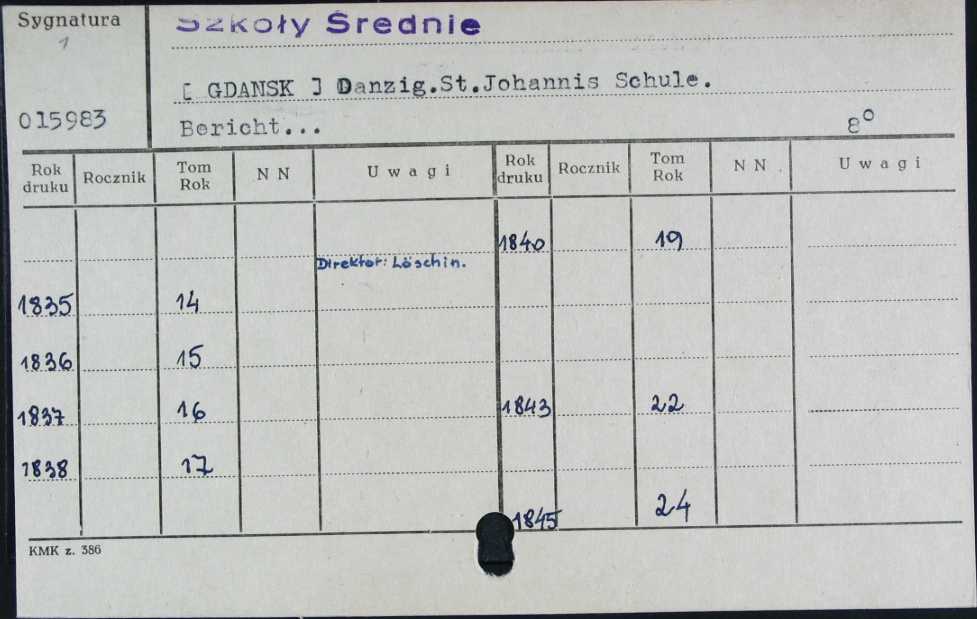 Sygnatura
1
015983
Szkoły Średnie
[ GDANSK ] Danzig.St.Johannis Schule.
Bericht...
8°
Rok druku Rocznik Tom Rok N N U w a g i Rok druku Rocznik Tom Rok N N U w a g i
1840 19
Direktor: Löschin.
1835 14
1836 15
1837 16 1843 22
1838 17
1845 24
KMK z. 386